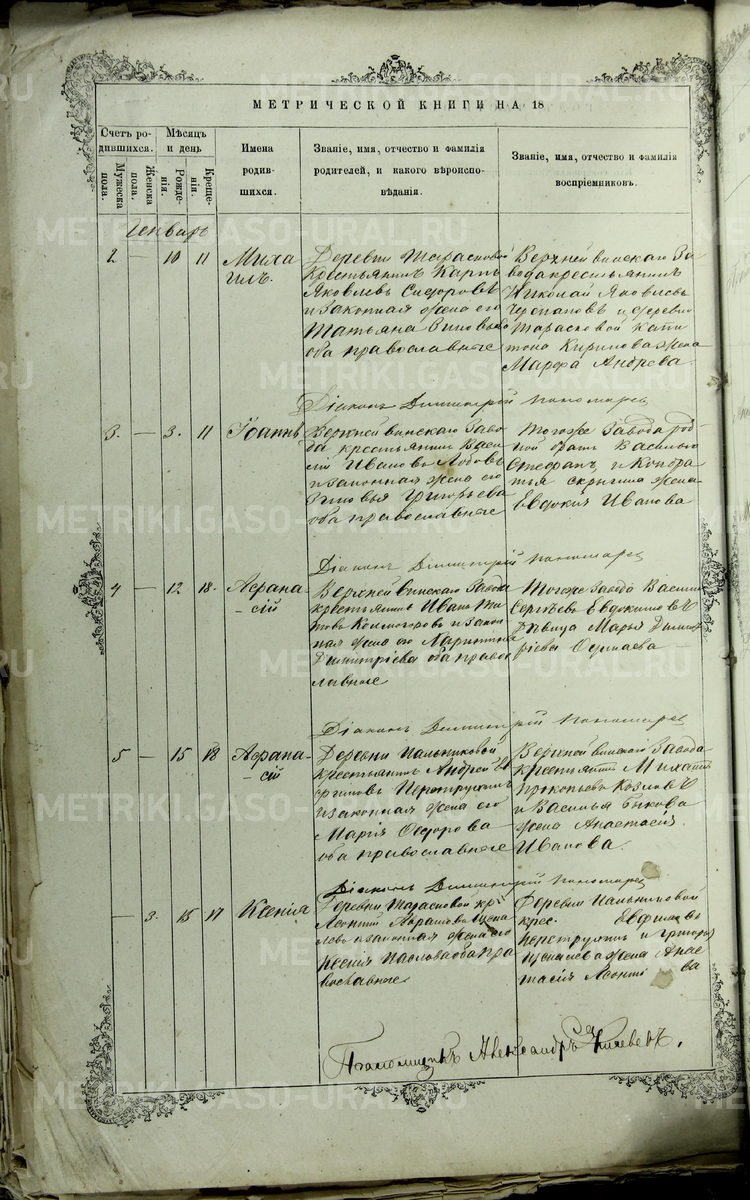 МЕТРИЧЕСКОЙ КНИГИ НА 18
Счетъ ро-
дившихся.
Мѣсяцъ
и день
Мужеска
пола.
Женска
пола.
Рожде-
нія.
Креще-
нія.
Имена
родив-
шихся.
Званіе, имя, отчество и фамилія
родителей, и какого вѣроиспо-
вѣданія.
Званіе, имя, отчество и фамилія
воспріемниковъ.
Генварь
2 — 10 11
Миха
илъ.
Деревни Тарасковой
крестьянинъ Карпъ
Яковлевъ Сидоровъ
и законная жена его
Татьяна
оба православные
Верхнейвинскаго За
вода крестьянинъ
Николай Яковлевъ
Черепановъ и деревни
Тарасковой Капи
тона Кирилова жена
Марфа Андрева.
Діаконъ Димитрій Пономарев
3. — 3. 11
Іоаннъ
Верхнейвинскаго Заво
да крестьянинъ Васи
лій Ивановъ Лобовъ
и законная жена его
Зиновья Григорьева
оба православные
Тогоже Завода род
ной братъ Василью
Стефанъ и Кондра
тья жена
Евдокия Иванова
Діаконъ Димитрій Пономарев
4 — 12 18.
Афана
-сій
Верхнейвинскаго Завода
крестьянинъ Иванъ Ти
товъ Колмогоровъ и закон
ная жена его
Димитріева оба право
лавные
Тогоже Завода Васили
Сергѣевъ Евдокимовъ и
Дѣвица Марья Димит
ріева
Діаконъ Димитрій Пономарев
5 — 15 18
Афана
-сій
Деревни Пальниковой
крестьянинъ Андрей
Перетрутовъ
и законная жена его
Марія Федорова
оба православные
Верхнейвинскаго Завода
крестьянинъ Михаилъ
Прокопьевъ Козловъ
и Василья Быкова
жена Анастасія
Иванова.
Діаконъ Димитрій Пономарев
— 3. 15 17
Ксенія
Деревни Тарасковой кр.
Леонтій Абрамовъ
и законная жена его
Ксенія Павлова оба пра
вославные
Деревни Пальниковой
крес. Евфимовъ
и Григорья
жена Анас
тасія Леонті ва
Александръ
METRIKI.GASO-URAL.RU